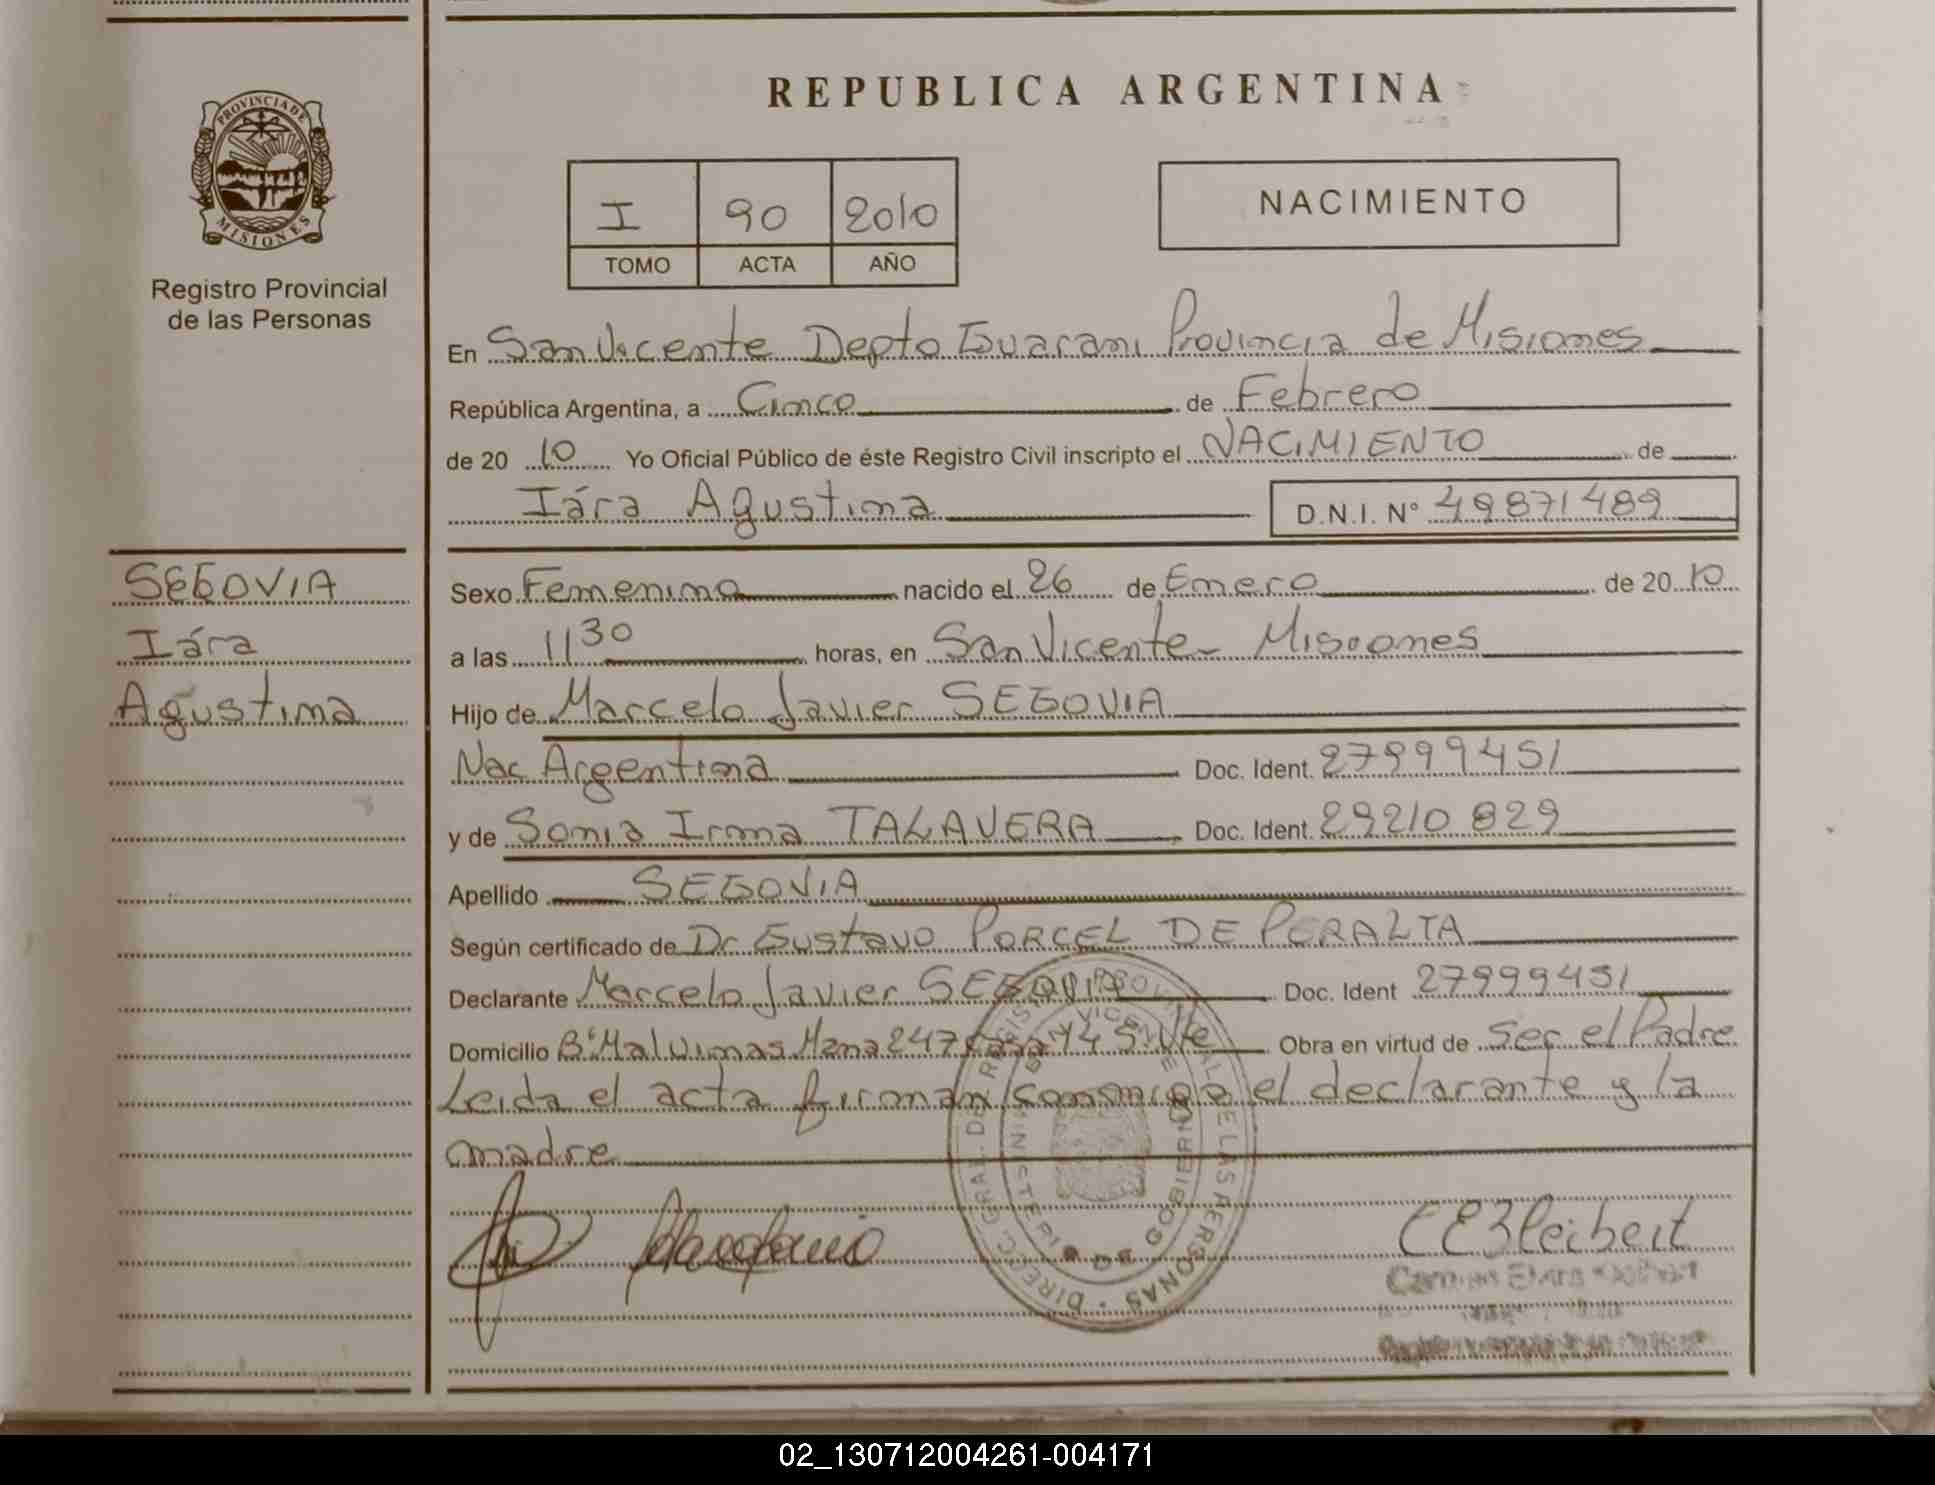 REPUBLICA ARGENTINA
PROVINCIA DE
MISIONES
Registro Provincial
de las Personas
I 90 2010
TOMO ACTA AÑO
NACIMIENTO
En San Vicente Depto Guarani Provincia de Misiones
República Argentina, a Cinco de Febrero
de 20 10 Yo Oficial Público de éste Registro Civil inscripto el NACIMIENTO de
Iára Agustina D.N.I. N° 49871489
SEGOVIA
Iára
Agustina
Sexo Femenino nacido el 26 de Enero de 20 10
a las 11 30 horas, en San Vicente - Misiones
Hijo de Marcelo Javier SEGOVIA
Nac Argentina Doc. Ident. 27999451
y de Sonia Irma TALAVERA Doc. Ident. 29210 829
Apellido SEGOVIA
Según certificado de Dr Gustavo PORCEL DE PERALTA
Declarante Marcelo Javier SEGOVIA Doc. Ident 27999451
Domicilio B° Malvinas Mana 247 Casa 14 S. Vte Obra en virtud de ser el Padre
Leida el acta firman conmigo el declarante y la
madre
02_130712004261-004171